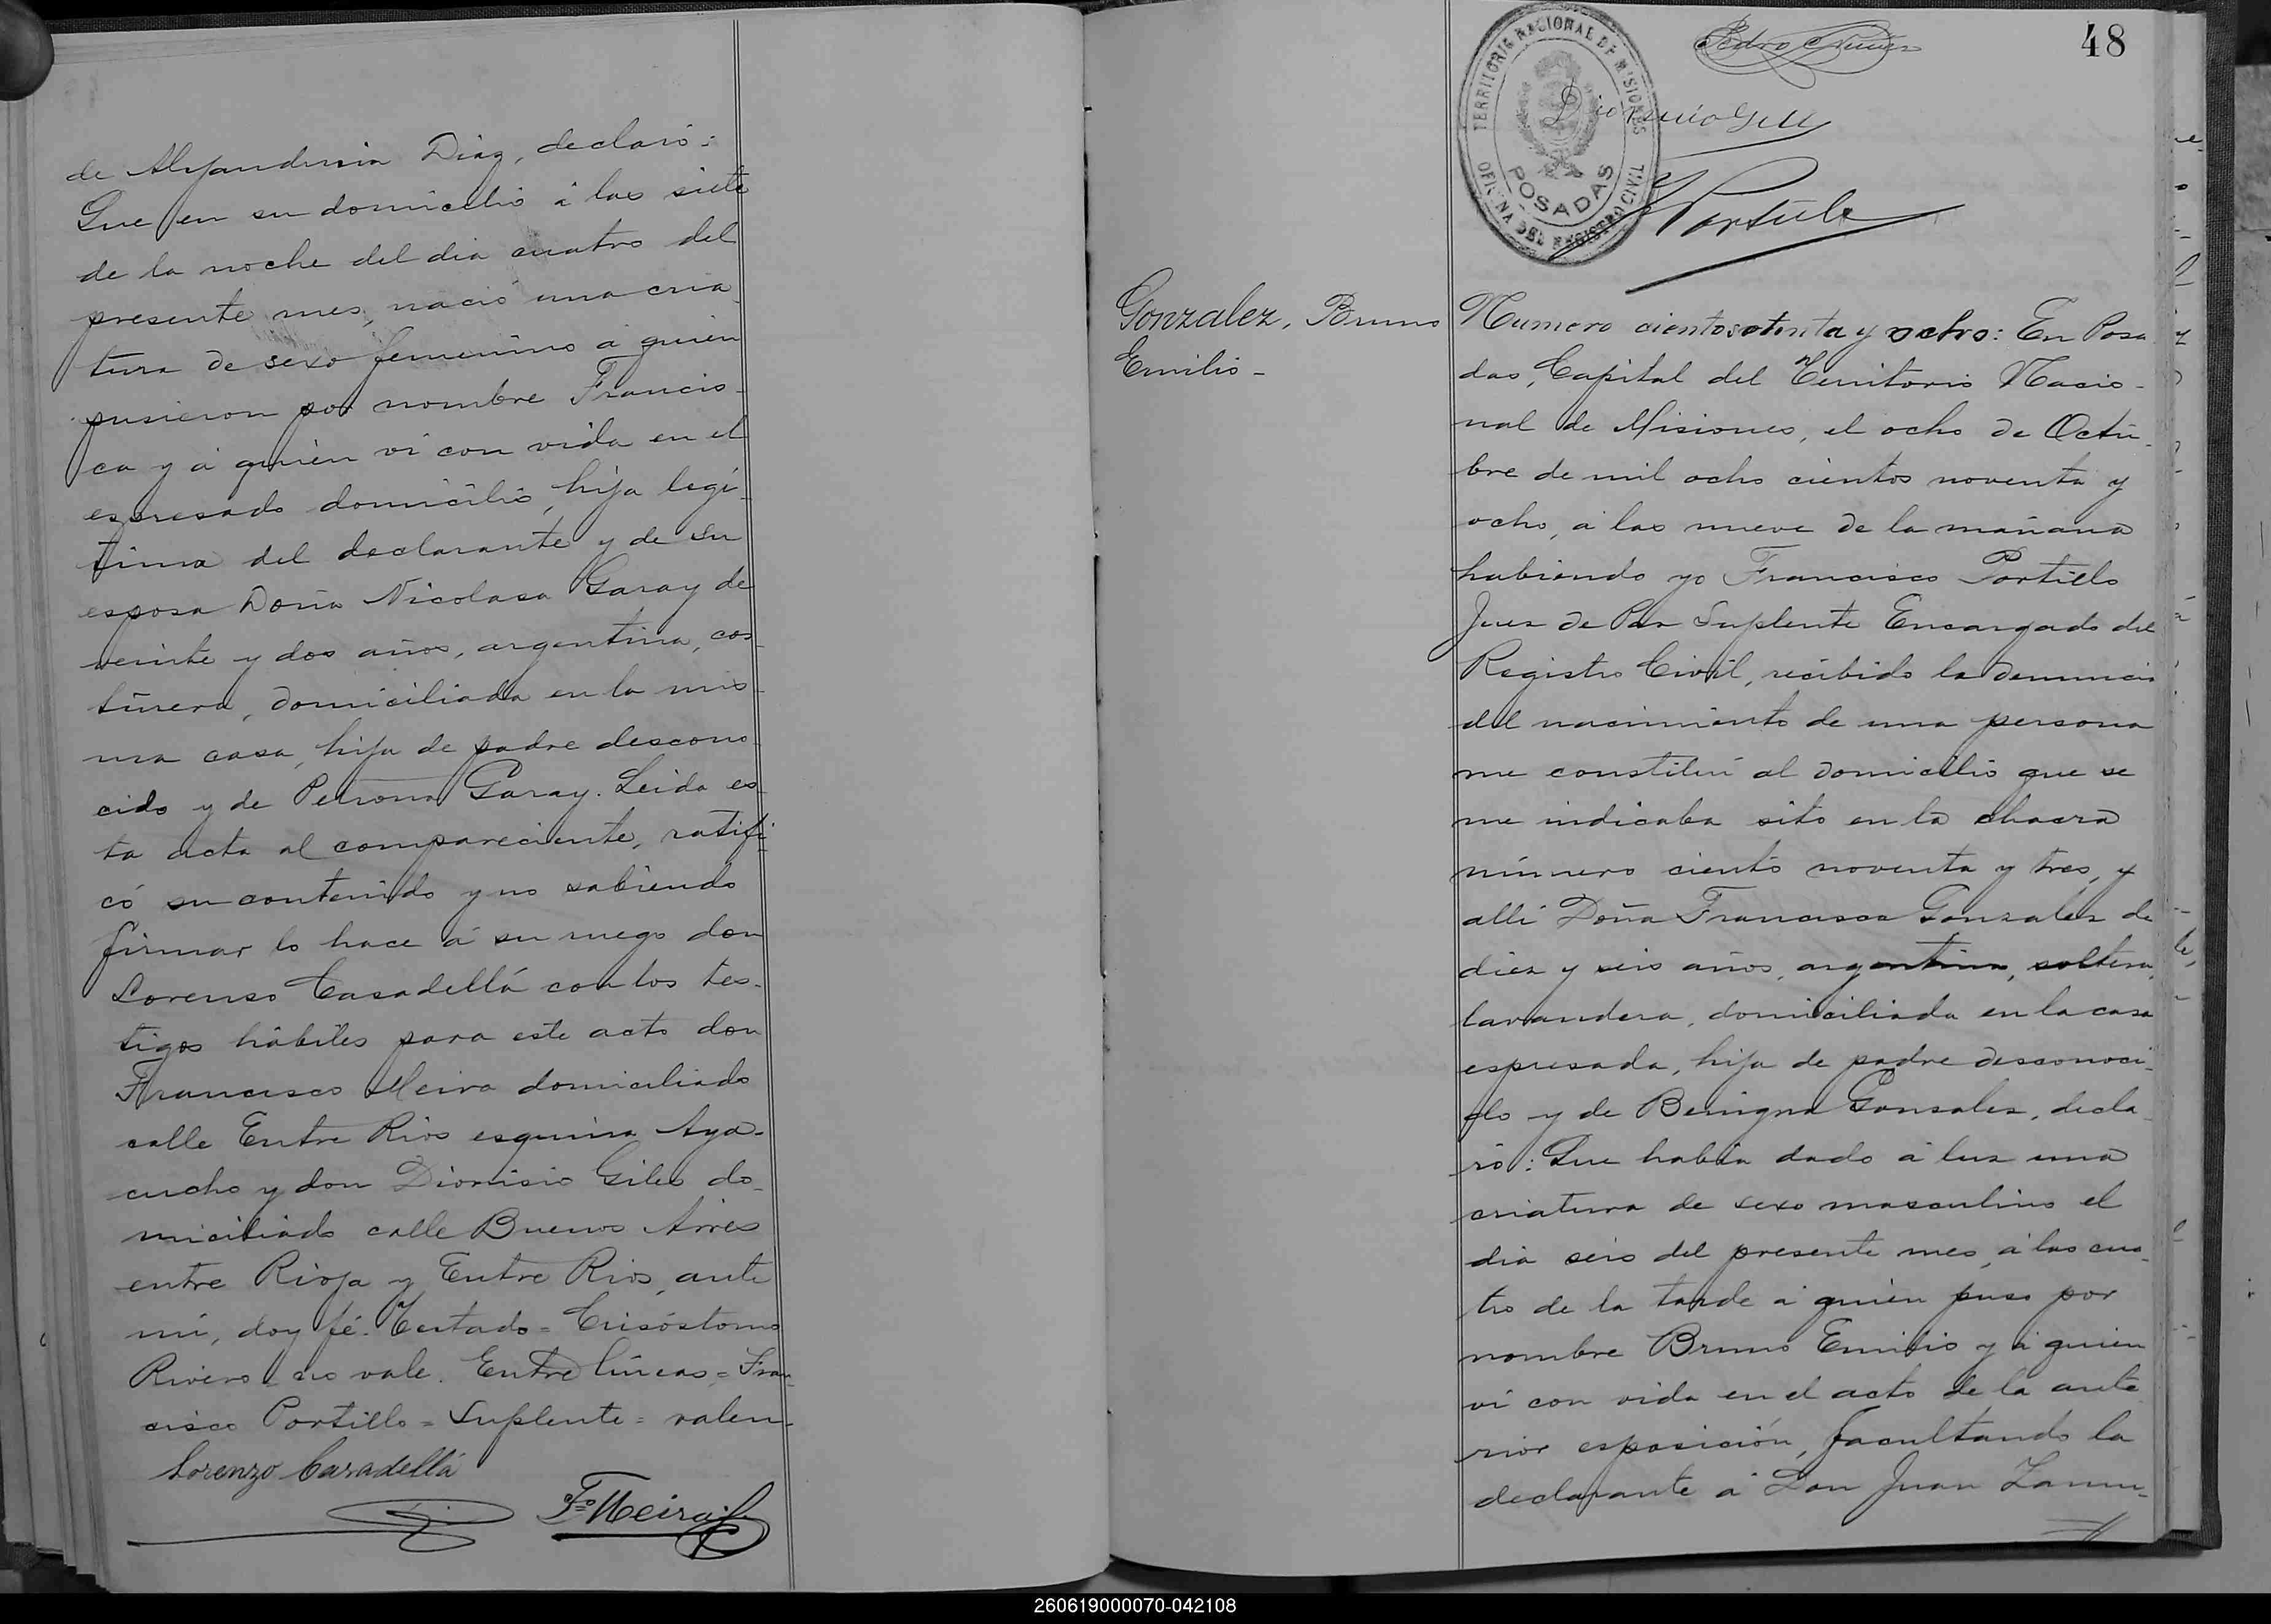 de Alejandrina Diaz, declaró:
Que en su domicilio á las siete
de la noche del dia cuatro del
presente mes, nació una cria
tura de sexo femenino á quien
pusieron por nombre Francis-
ca y á quien ví con vida en el
espresado domicilio, hija legí-
tima del declarante y de su
esposa Doña Nicolasa Garay de
veinte y dos años, argentina, cos-
turera, domiciliada en la mis-
ma casa, hija de padre descono-
cido y de Petrona Garay. Leida es-
ta acta al compareciente, ratifi-
có su contenido y no sabiendo
firmar lo hace á su ruego don
Lorenso Casadellá con los tes-
tigos hábiles para este acto don
Francisco Meira domiciliado
calle Entre Rios esquina Aya-
cucho y don Dionisio Giles do-
miciliado calle Buenos Aires
entre Rioja y Entre Rios, ante
mi, doy fé. Testado = Crisóstomo
Rivero = no vale. Entre lineas = Fran-
cisco Portillo = Suplente = valen-
Lorenzo Casadellá
Fco Meira
48
TERRITORIO NACIONAL DE MISIONES
POSADAS
OFICINA DEL REGISTRO CIVIL
Pedro
Portillo
Gonzalez, Bruno
Emilio -
Numero ciento setenta y ocho: En Posa
das, Capital del Territorio Nacio-
nal de Misiones, el ocho de Octu-
bre de mil ocho cientos noventa y
ocho, á las nueve de la mañana
habiendo yo Francisco Portillo
Juez de Paz Suplente Encargado del
Registro Civil, recibido la denuncia
del nacimiento de una persona
me constituí al domicilio que se
me indicaba sito en la chacra
número ciento noventa y tres, y
allí Doña Francisca Gonzalez de
diez y seis años, argentina, soltera,
lavandera, domiciliada en la casa
espresada, hija de padre desconoci-
do y de Benigna Gonsalez, decla-
ró: Que habia dado á luz una
criatura de sexo masculino el
dia seis del presente mes, á las cua-
tro de la tarde á quien puso por
nombre Bruno Emilio y á quien
ví con vida en el acto de la ante
rior esposición, facultando la
declarante á Don Juan
260619000070-042108